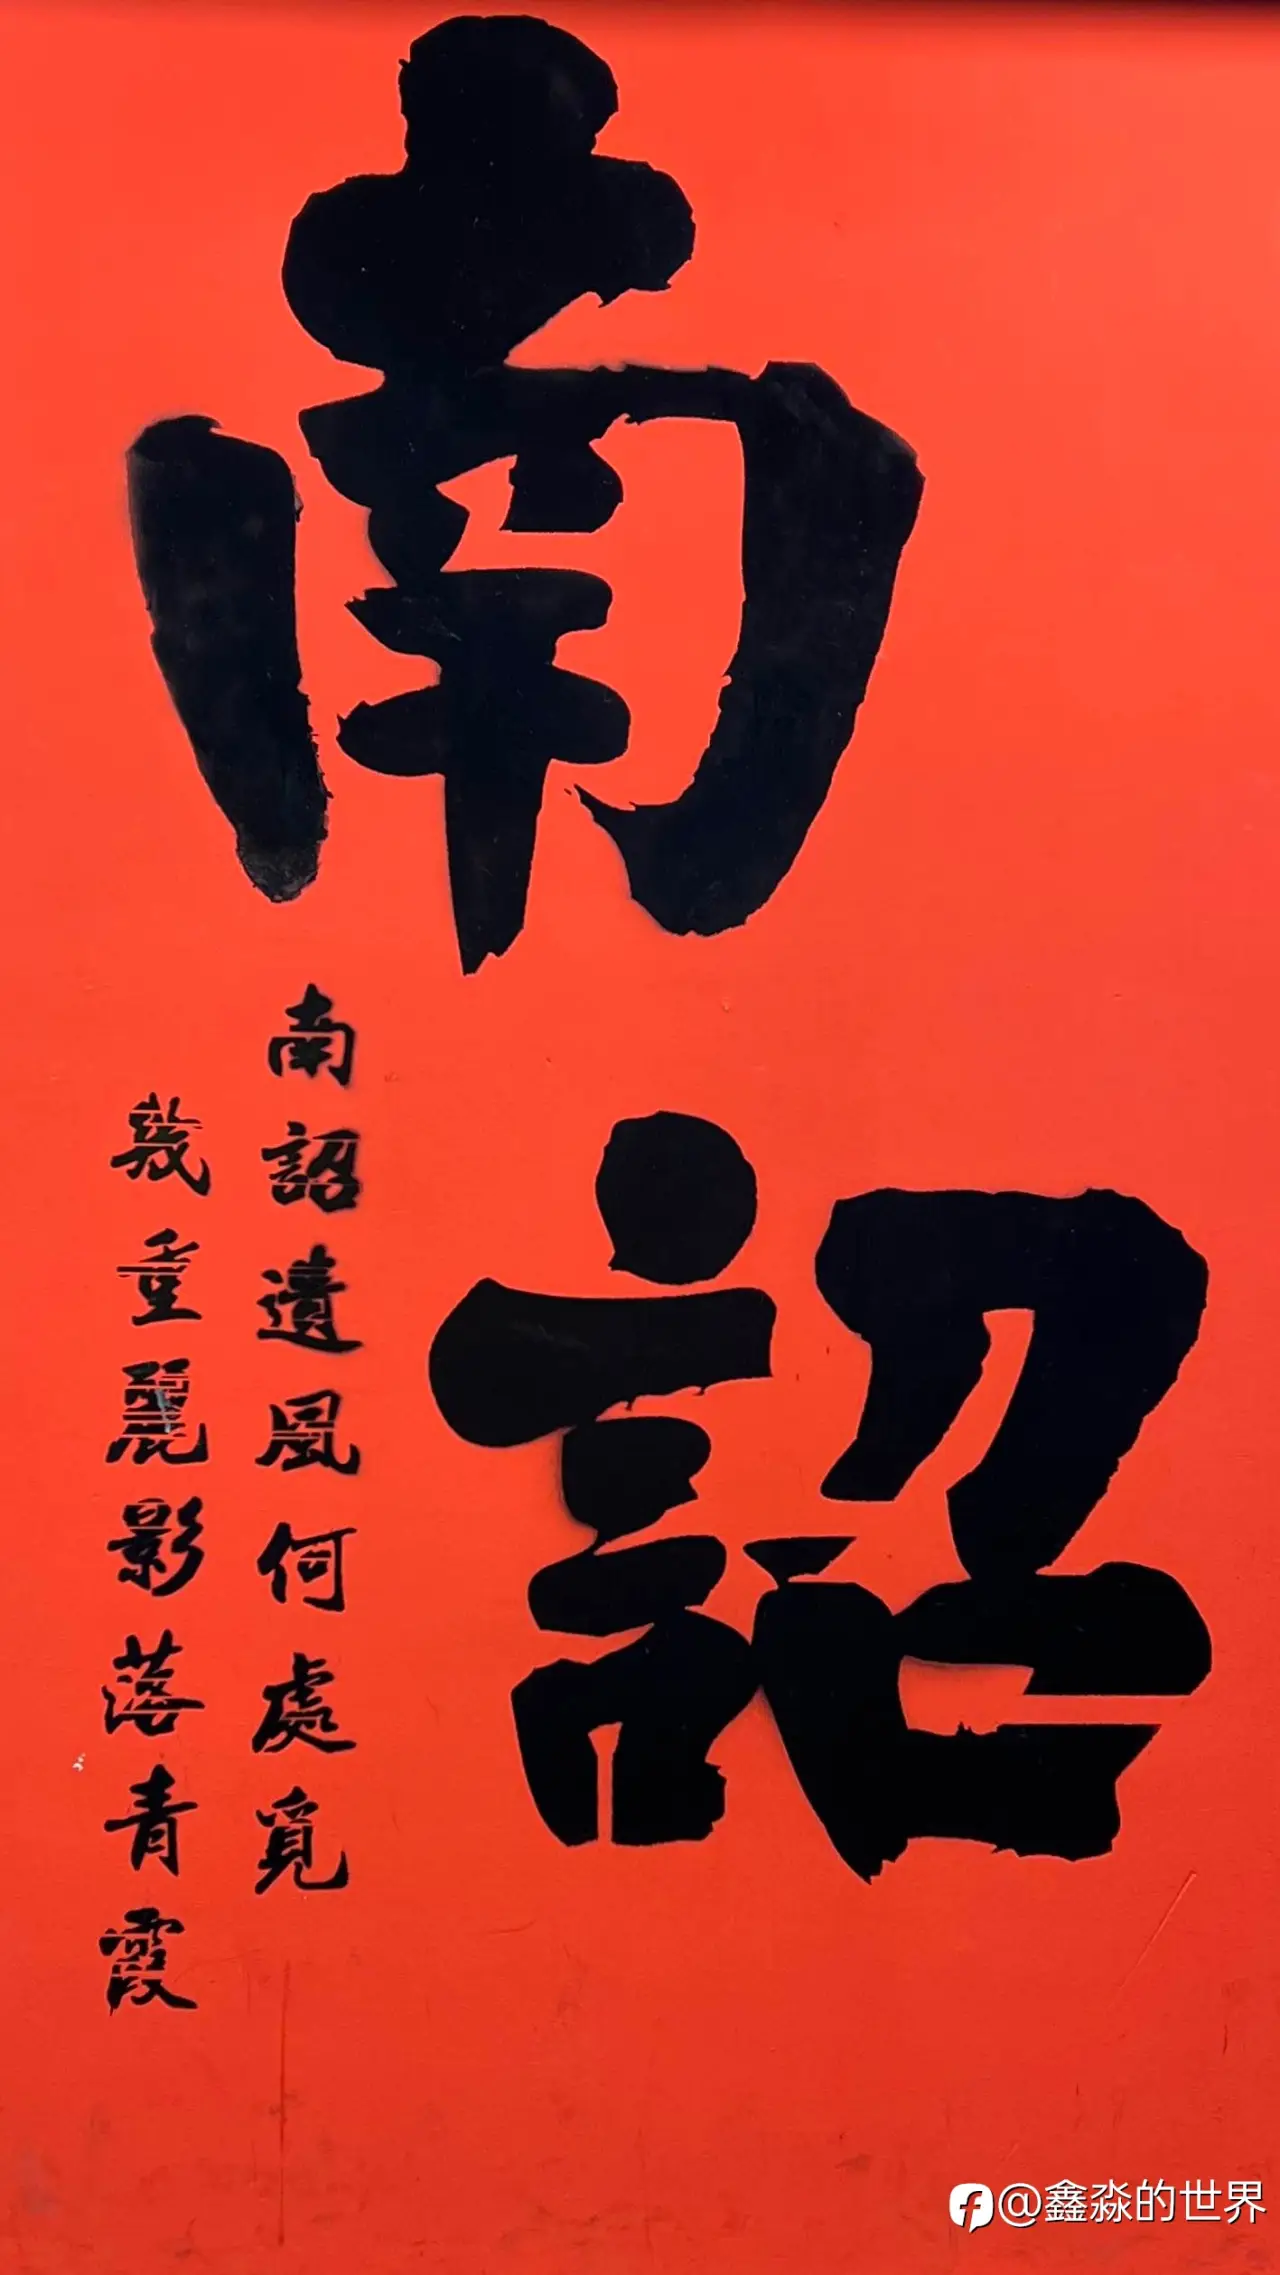 南詔
南詔遺風何處覓
幾重麗影落青霞
@鑫淼的世界